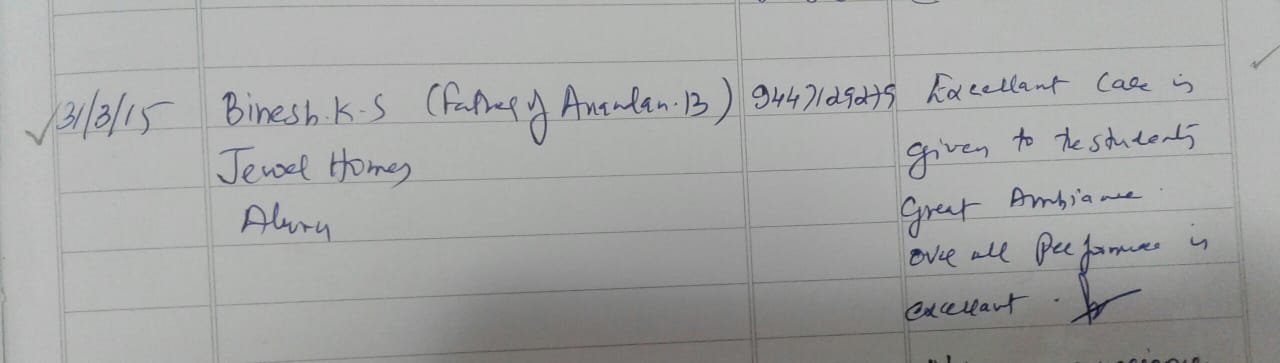 31/3/15 Binesh.K.S (Father of Anandan.B) 9447129279 Excellant Care is
Jewel Homes given to the students
Aluva Great Ambiance.
over all Performance is
excellant.